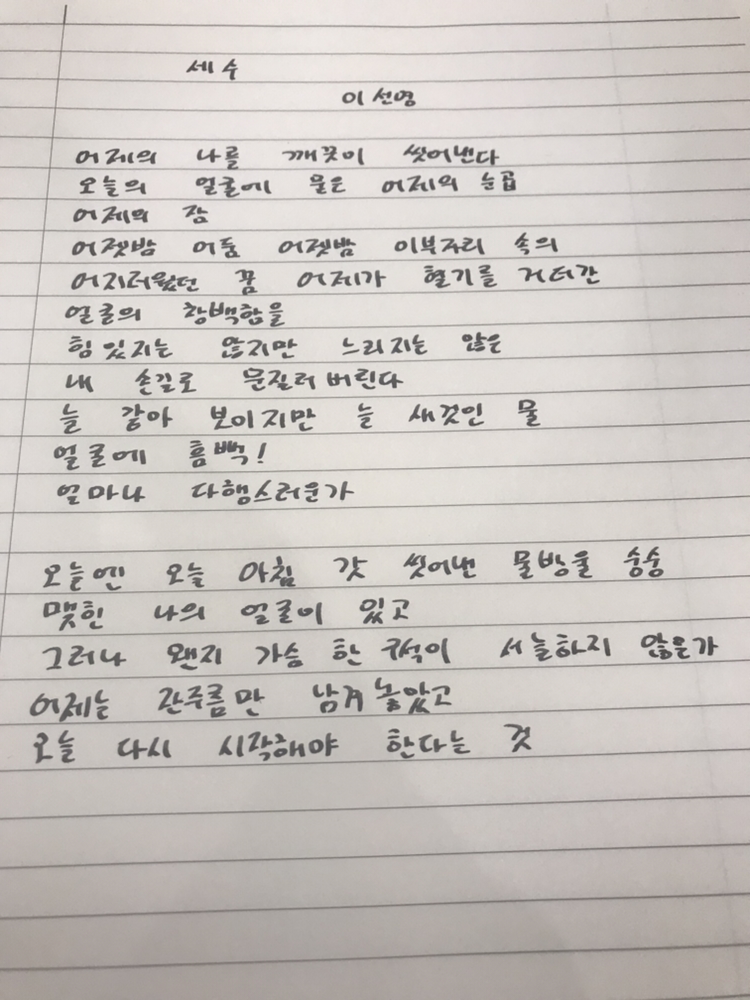 세수
이선영
어제의 나를 깨끗이 씻어낸다
오늘의 얼굴에 묻은 어제의 눈곱
어제의 잠
어젯밤 어둠 어젯밤 이부자리 속의
어지러웠던 꿈 어제가 혈기를 거둬간
얼굴의 창백함을
힘있지는 않지만 느리지는 않은
내 손길로 문질러버린다
늘 같아 보이지만 늘 새것인 물
얼굴에 흠뻑!
얼마나 다행스러운가
오늘엔 오늘 아침 갓 씻어낸 물방울 숭숭
맺힌 나의 얼굴이 있고
그러나 왠지 가슴 한 구석이 서늘하지 않은가
어제는 잔주름만 남겨놓았고
오늘 다시 시작해야 한다는 것